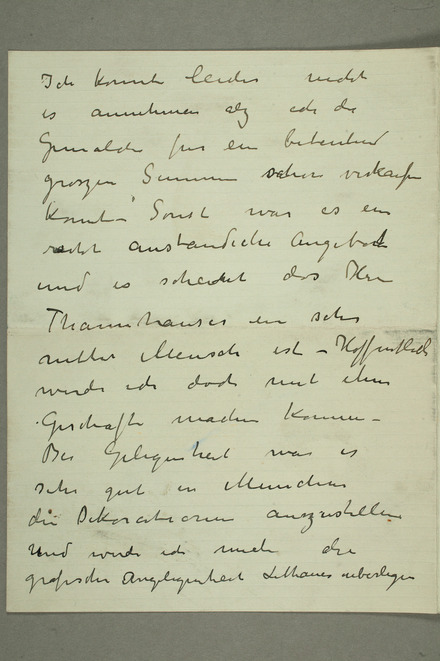 Ich konnte leider nicht
es annehmen als ich die
Gemalde fur ein betreutend
groszen Summen schon verkaufen
konnt – Sonst war es ein
recht anstandiche Angebot
und es scheint das Herr
Thannhauser ein sehr
netter Mensch ist – Hoffentlich
werde ich doch mit ihm
Geschafte machen konnen –
Bei Gelegenheit war es
sehr gut in Munchen
die Dekorationen auszustellen
Und werde ich mich die
grafische Angelegenheit uberlegen